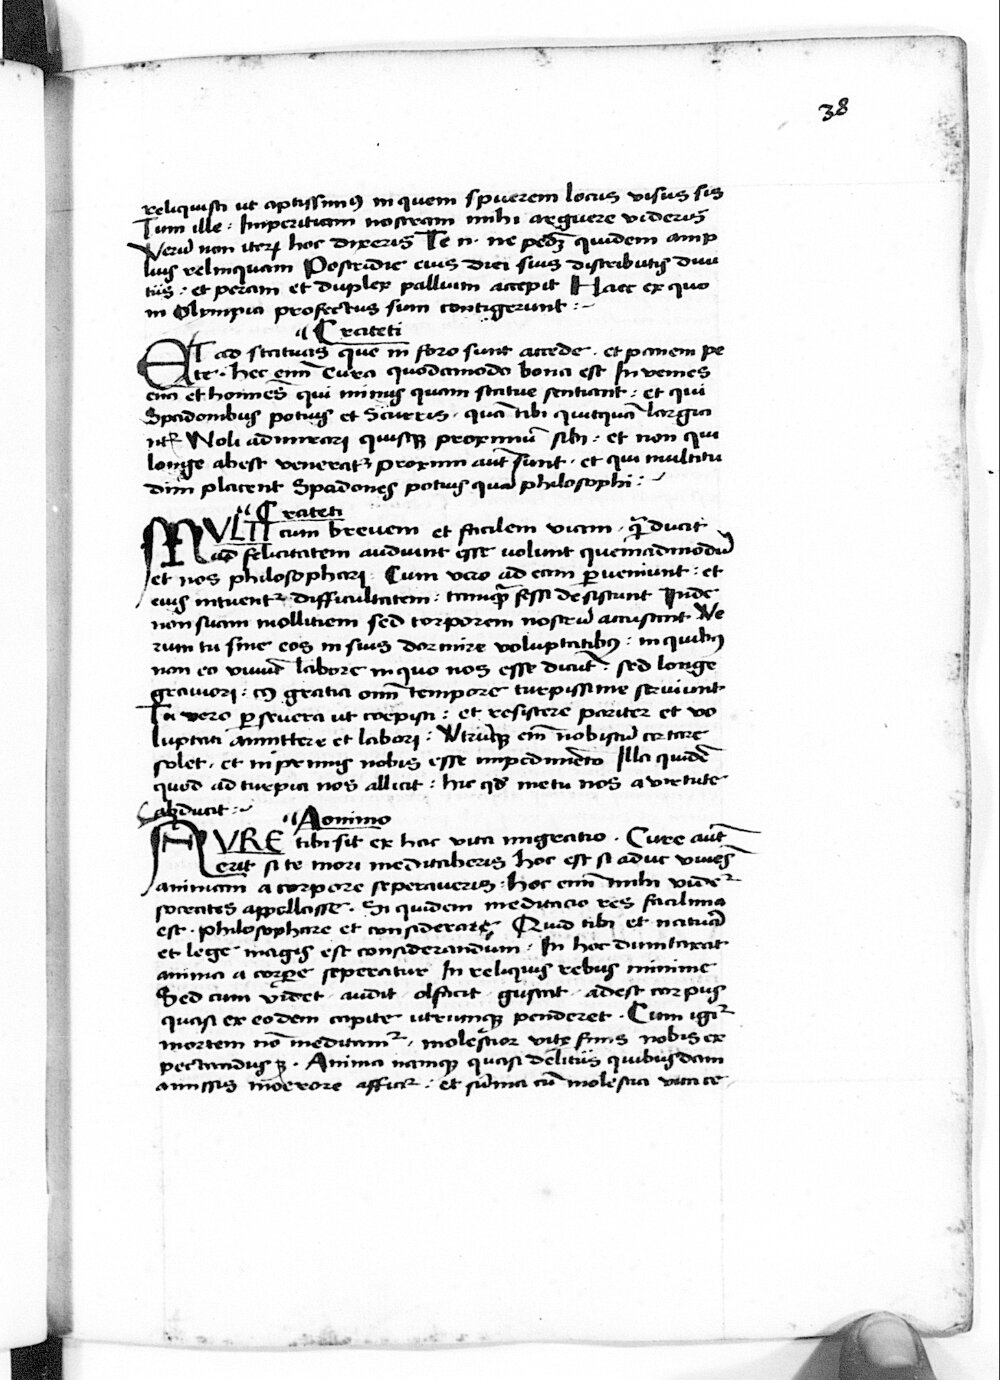 38
reliquisti ut aptissimꝰ in quem spuerem locus visus sis
Tum ille: Imperitiam nostram mihi arguere videris
Verū non iterꝝ hoc dixeris Te n. ne pedē quidem amp
lius relinquam Postridie eius diei suis distributis diui
tiis: et peram et duplex pallium accepit Haec ex quo
in Olympia profectus sum contigerunt:~
Crateti
ET ad statuas que in foro sunt accede. et panem pe
te. hec enī cura quodamodo bona est Inuenies
etiā et hoīnes qui minus quam statue sentiant: et qui
Spadonibus potius et Scurris. quā tibi quitquā largiā
Noli admirari quisqꝫ proximū sibi: et non qui
longe abest veneratᷣ proximi aut sunt. et qui multitu
dini placent Spadones potius quā philosophi:~
Crateti
MVLTI cum brevem et facilem viam. quā ducit
ad felicitatem audiunt esse volunt quemadmodū
et nos philosophari. Cum vero ad eam ꝑveniunt: et
eius intuentᷣ difficultatem: tamquā fessi desistunt Inde
non suam mollitiem sed torporem nostrū accusant Ve
rum tu sine eos in suis dormire voluptatibꝰ: in quibꝰ
non eo viuūt labore in quo nos esse dicūt: sed longe
graviori: cꝰ gratia omī tempore turpissime serviunt
Tu vero ꝑsevera ut coepisti: et resistere pariter et vo
luptati amittere et labori: Vtrūqꝫ enī nobiscū certare
solet. et inprimis nobis esse impedimēto Illa quidē
quod ad turpia nos allicit: hic qđ metu nos a virtute
abducit:~
Aonimo
CVRE tibi sit ex hac vita migratio. Cure aut
erit si te mori meditaberis hoc est si aduc viuēs
animam a corpore seperaveris: hoc enī mihi videᷣ
socrates appellasse. Si quidem meditacio res facilima
est. philosophare et considerare Quid tibi et naturā
et lege magis est considerandum: In hoc dumtaxat
anima a corꝑe seperatur In reliquis rebus minime
Sed cum videt. audit. olfacit. gustat. adest corpus
quasi ex eodem capite utrumqꝫ penderet. Cum igiᷣ
mortem nō meditamᷣ. molestior vite finis nobis ex
pectandus ē. Anima namqꝫ quasi delitiis quibusdam
amissis moerore afficiᷣ: et sūma cū molestia vita te